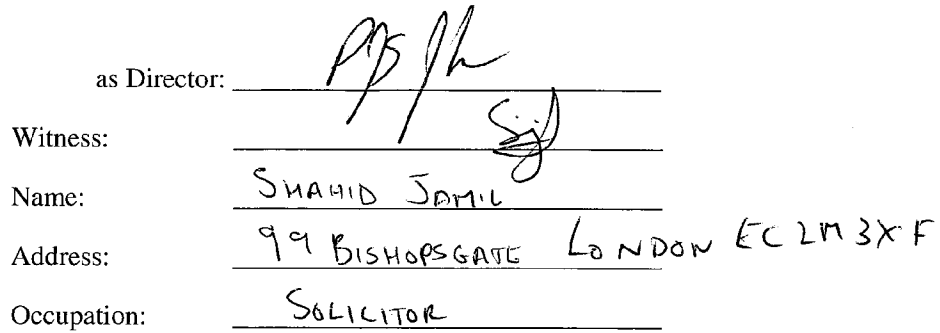 as Director:
Witness:
Name: SHAHID JAMIL
Address: 99 BISHOPSGATE LONDON EC2M 3XF
Occupation: SOLICITOR